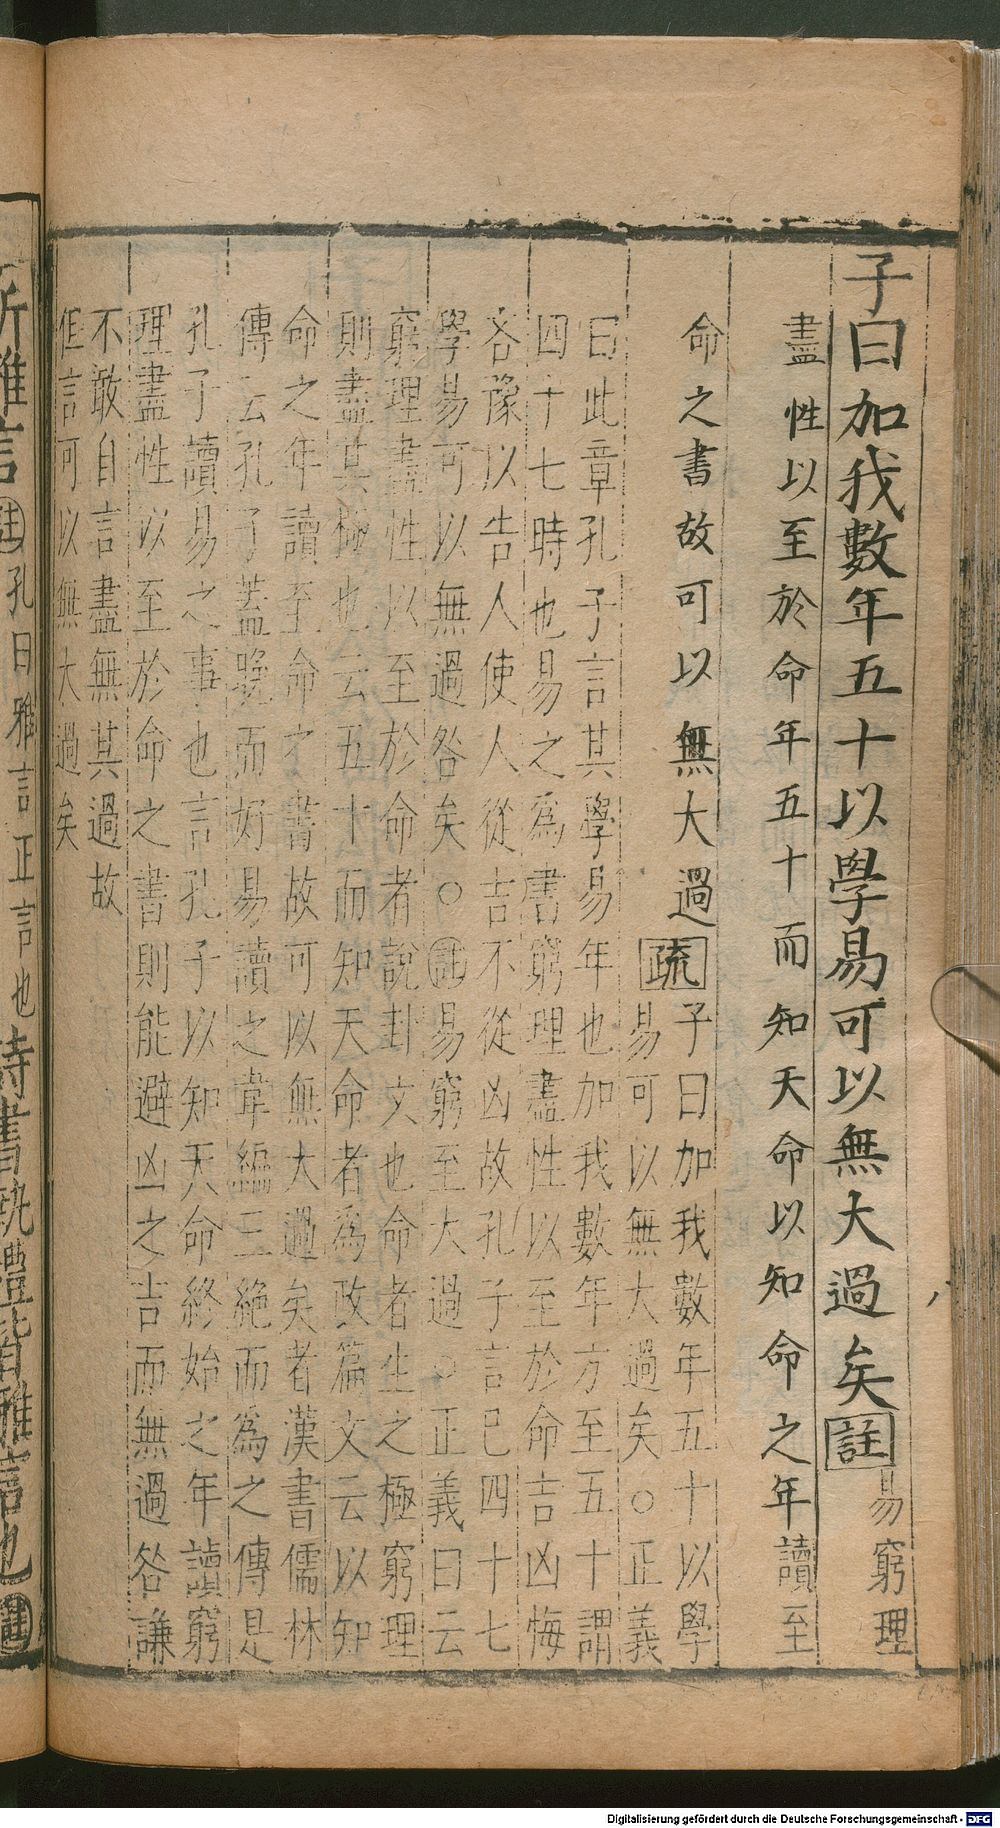 子曰加我數年五十以學易可以無大過矣註易窮理
盡性以至於命年五十而知天命以知命之年讀至
命之書故可以無大過疏子曰加我數年五十以學
易可以無大過矣○正義
曰此章孔子言其學易年也加我數年方至五十謂
四十七時也易之為書窮理盡性以至於命吉凶悔
吝豫以告人使人從吉不從凶故孔子言已四十七
學易可以無過咎矣○註易窮至大過○正義曰云
窮理盡性以至於命者說卦文也命者生之極窮理
則盡其極也云五十而知天命者為政篇文云以知
命之年讀至命之書故可以無大過矣者漢書儒林
傳云孔子蓋晚而好易讀之韋編三絕而為之傳是
孔子讀易之事也言孔子以知天命終始之年讀窮
理盡性以至於命之書則能避凶之吉而無過咎謙
不敢自言盡無其過故
但言可以無大過矣
所雅言註孔曰雅言正言也詩書執禮皆雅言也註
Digitalisierung gefördert durch die Deutsche Forschungsgemeinschaft - DFG